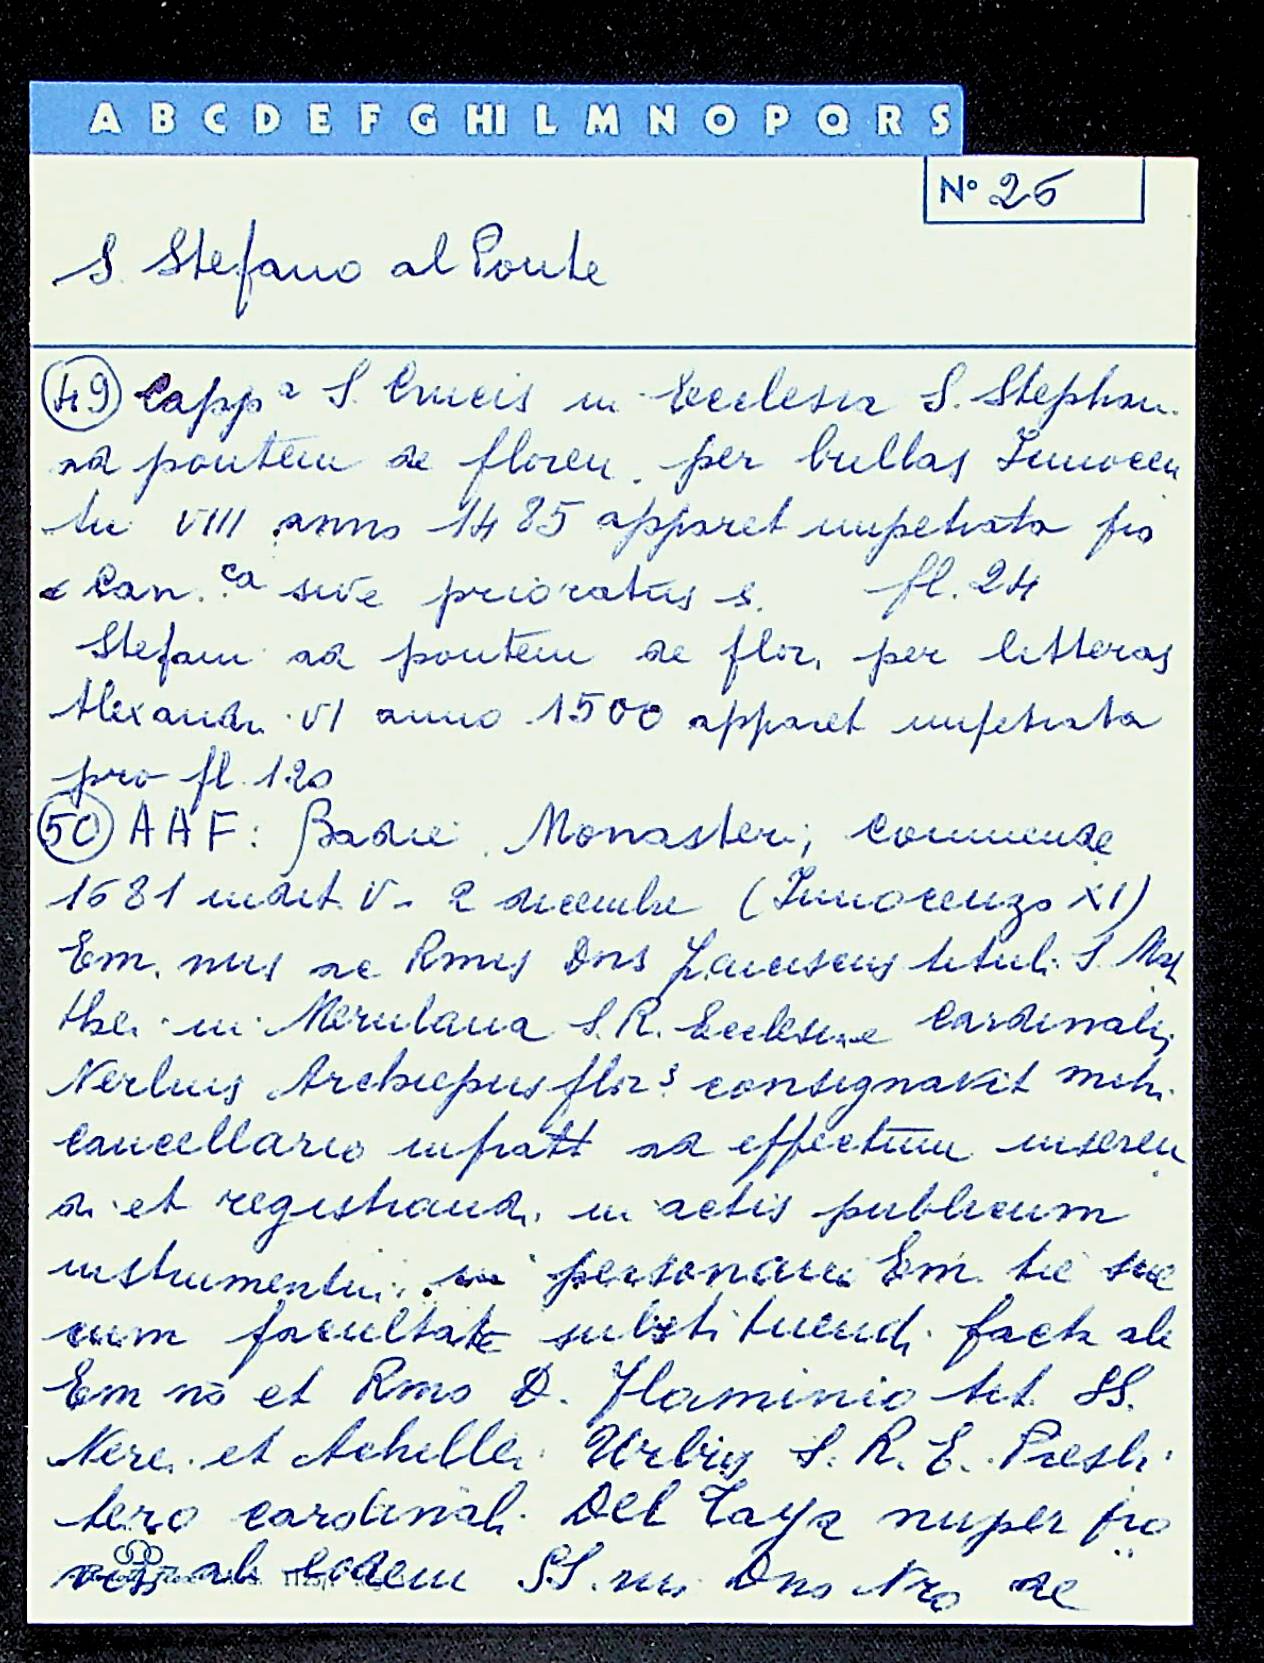 A B C D E F G HI L M N O P Q R S
N° 26
S. Stefano al Ponte
49 Capp.a S. Crucis in Ecclesia S. Stephani
ad pontem de floren. per bullas Innocen
tii VIII anno 1485 apparet impetrata pro
Can.ca sive prioratus s. fl. 24
Stefani ad pontem de flor. per litteras
Alexandri VI anno 1500 apparet impetrata
pro fl. 120
50 AAF: Badie, Monasteri, Commende
1681 indict. V - 2 decembre (Innocenzo XI)
Em. mus ac Rmus Dns Franciscus tituli S. Mat
thei in Merulana S. R. Ecclesiae Cardinalis
Nerlius Archiepus flor.s consignavit mihi
cancellario infratt ad effectum inseren
di et registrandi in actis publicum
instrumentum personam Em. tie sue
cum facultate substituendi facta ab
Em mo et Rmo D. Flaminio tit. SS.
Nerei et Achillei Urbis S. R. E. Presbi
tero cardinali Del Taya nuper pro
ab eodem SS. mo Dno Nro de